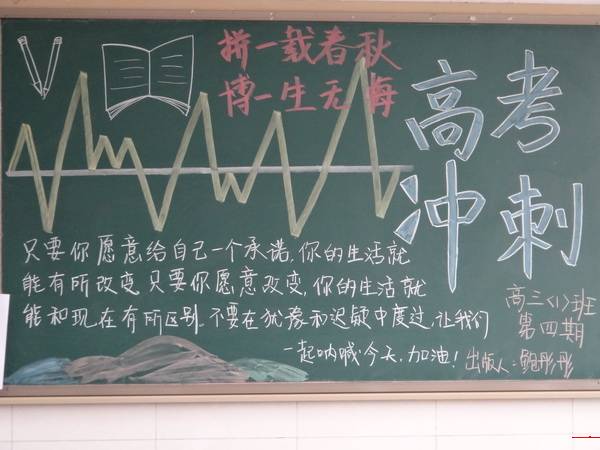 拼一载春秋
博一生无悔
高考
冲刺
只要你愿意给自己一个承诺,你的生活就
能有所改变,只要你愿意改变,你的生活就
能和现在有所区别。不要在犹豫和迟疑中度过,让我们
一起呐喊:今天,加油!
高三〈1〉班
第四期
出版人:鲍彤彤